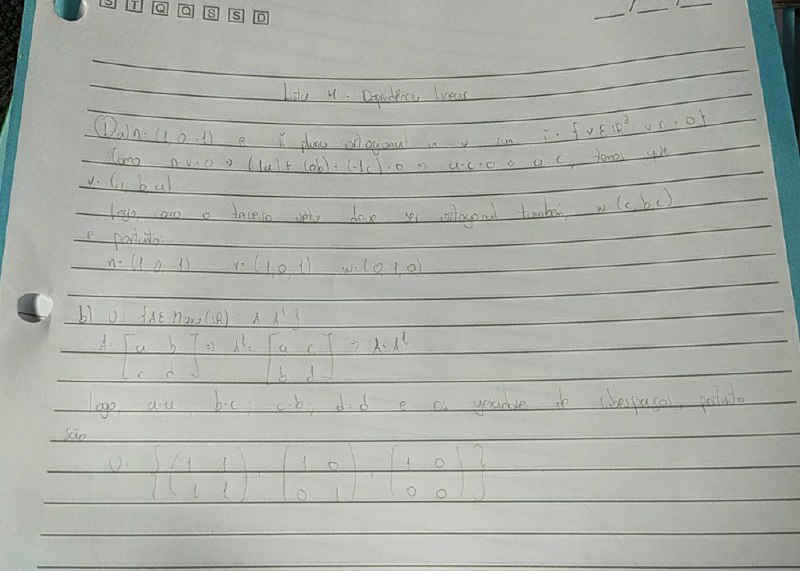 S T Q Q S S D
Lista 4 - Dependência linear
① a) n = (1, 0, -1) e plano ortogonal a v com = { v ∈ ℝ³ : v · = 0 }
Como n·v = 0 ⇒ (1a) + (0b) + (-1c) = 0 ⇒ a - c = 0 ⇒ a = c, temos que
v = ( , b, a)
Logo, como o terceiro vetor deve ser ortogonal também, w = (c, b, c)
e portanto:
n = (1, 0, -1) v = (1, 0, 1) w = (0, 1, 0)
b) U = { A ∈ M₂ₓ₂(ℝ) : A = Aᵗ }
A = [ a b ] ⇒ Aᵗ = [ a c ] ⇒ A = Aᵗ
[ c d ] [ b d ]
logo, a = a, b = c, c = b, d = d e os geradores de subespaços, portanto
são
U = { ( 1 1 ) , ( 1 0 ) , ( 1 0 ) }
( 1 1 ) ( 0 1 ) ( 0 0 )